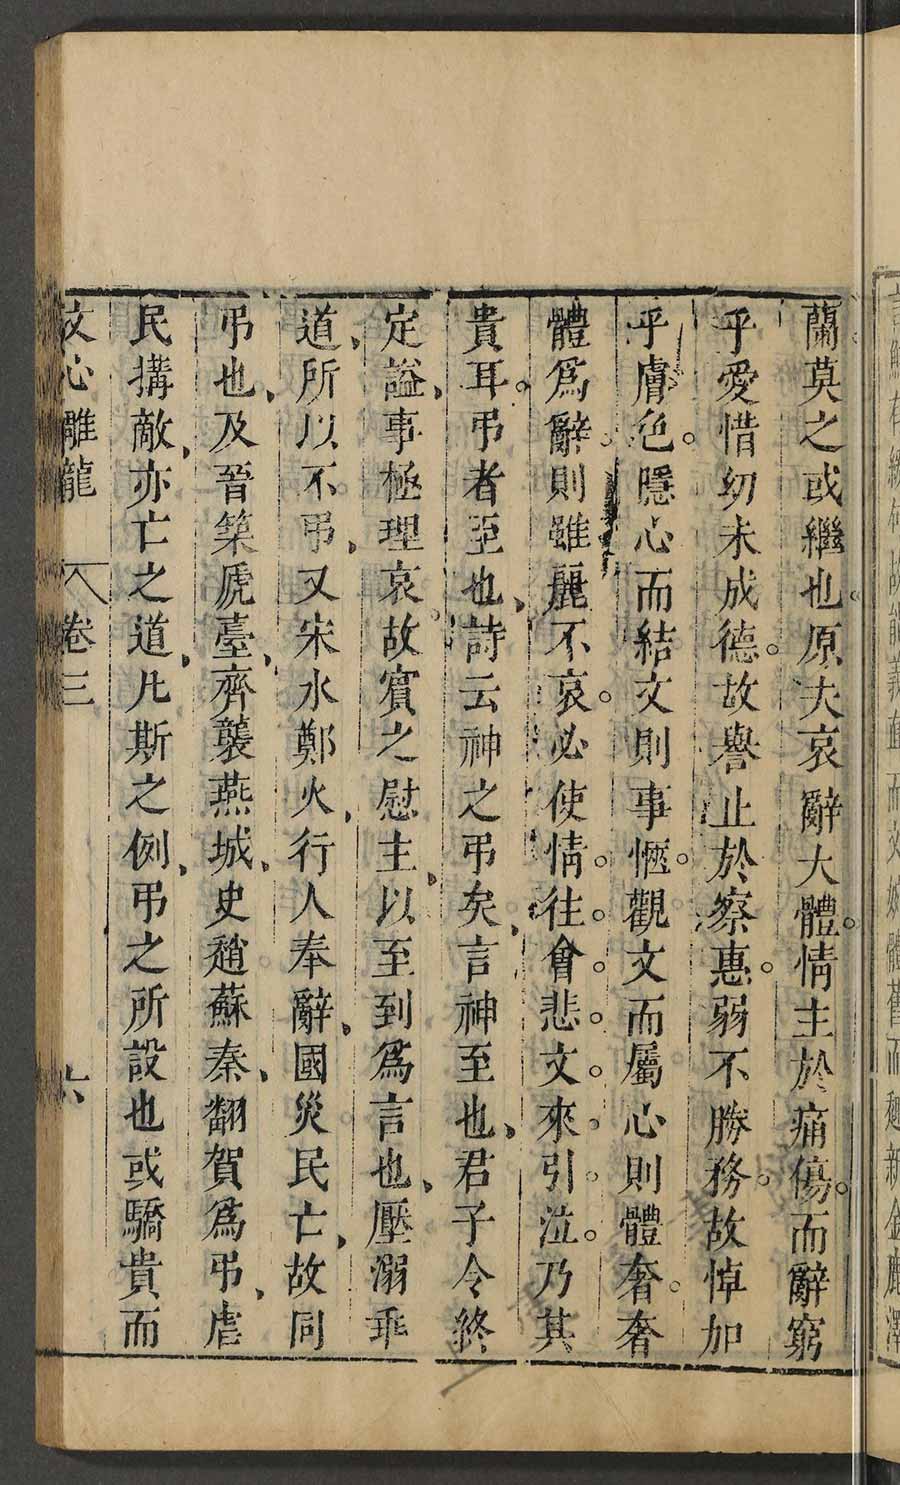 蘭莫之或繼也原夫哀辭大體情主於痛傷而辭窮
乎愛惜幼未成德故譽止於察惠弱不勝務故悼加
乎膚色隱心而結文則事愜觀文而屬心則體奢奢
體爲辭則雖麗不哀必使情往會悲文來引泣乃其
貴耳弔者至也詩云神之弔矣言神至也君子令終
定謚事極理哀故賓之慰主以至到爲言也壓溺乖
道所以不弔又宋水鄭火行人奉辭國災民亡故同
弔也及晉築虒臺齊襲燕城史趙蘇秦翻賀爲弔虐
民搆敵亦亡之道凡斯之例弔之所設也或驕貴而
文心雕龍 卷三 六